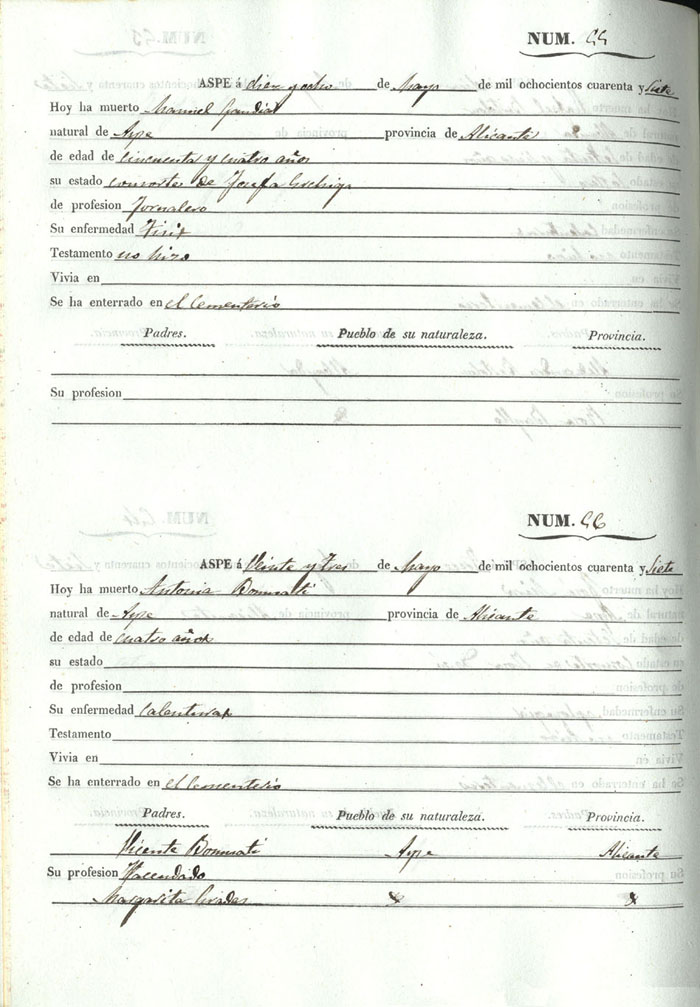 NUM. 55
ASPE á diez y ocho de Mayo de mil ochocientos cuarenta y Siete
Hoy ha muerto Manuel Gandia
natural de Aspe provincia de Alicante
de edad de cincuenta y cuatro años
su estado consorte de Josefa
de profesion Jornalero
Su enfermedad Tisis
Testamento no hizo
Vivia en
Se ha enterrado en el Cementerio
Padres. Pueblo de su naturaleza. Provincia.
Su profesion
NUM. 56
ASPE á Veinte y Tres de Mayo de mil ochocientos cuarenta y Siete
Hoy ha muerto Antonia Bonmati
natural de Aspe provincia de Alicante
de edad de cuatro años
su estado
de profesion
Su enfermedad Calenturas
Testamento
Vivia en
Se ha enterrado en el Cementerio
Padres. Pueblo de su naturaleza. Provincia.
Vicente Bonmati Aspe Alicante
Su profesion Hacendado
Margarita